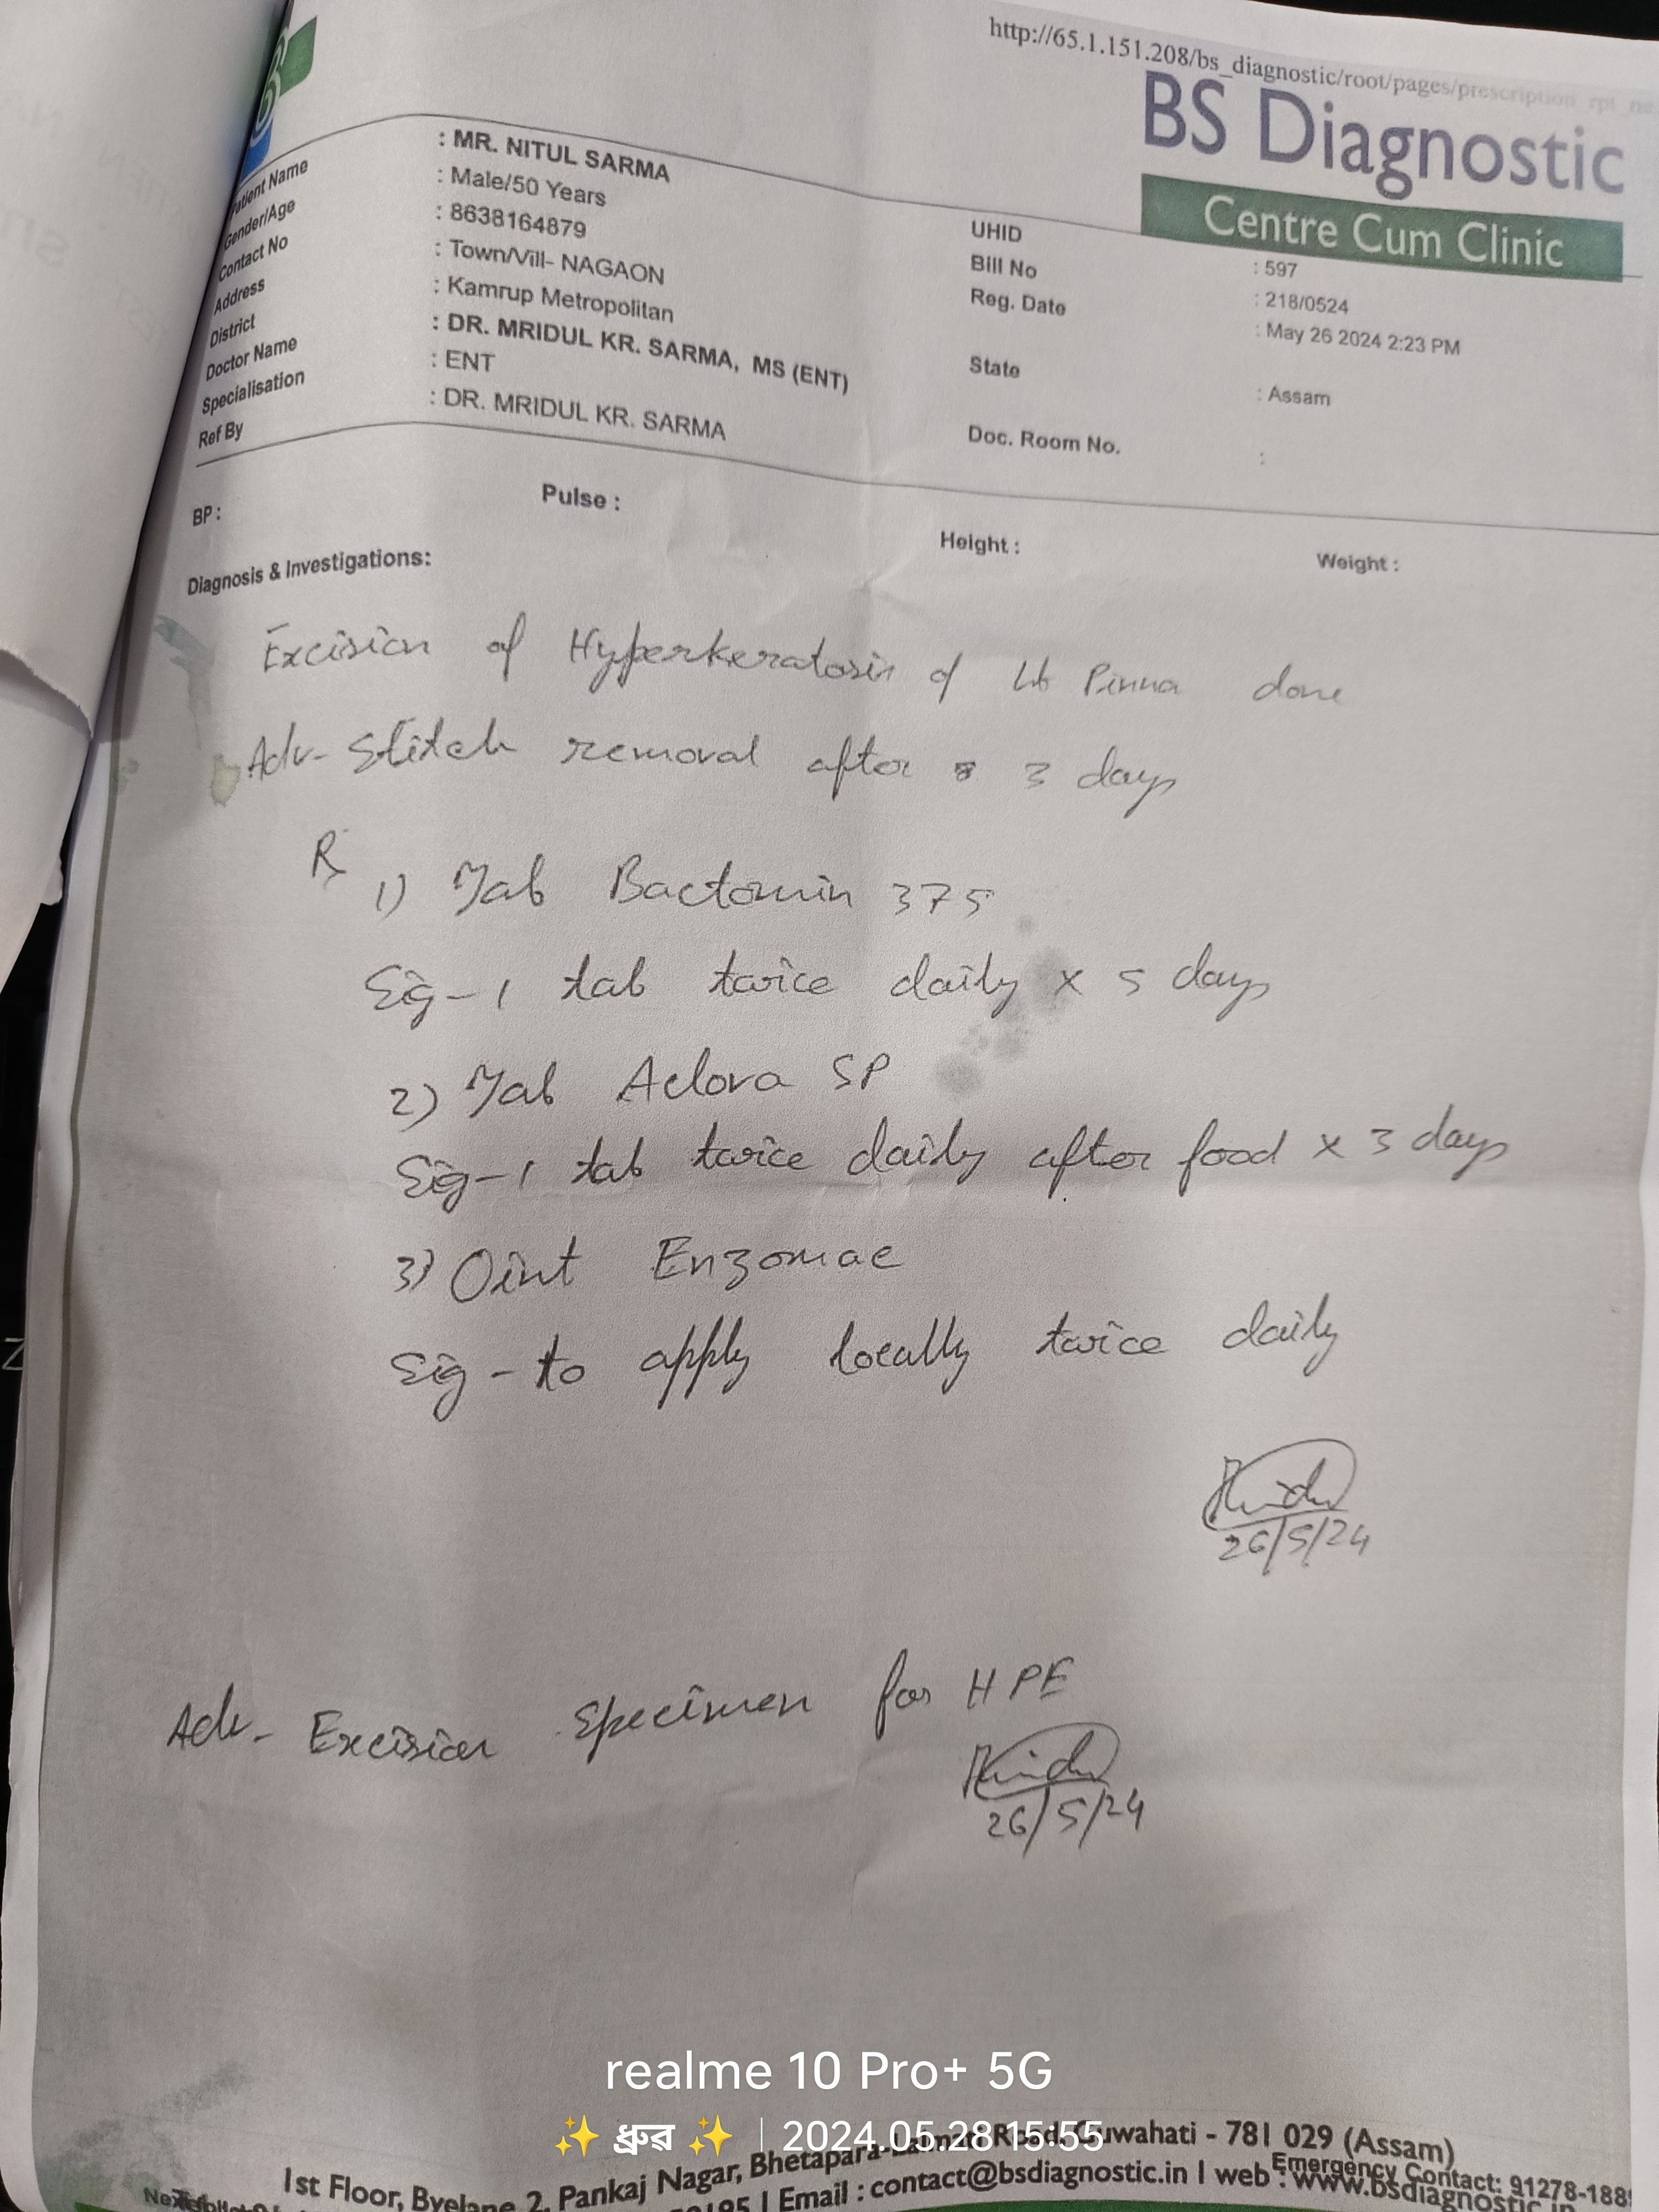 http://65.1.151.208/bs_diagnostic/root/pages/prescription_rpt_ne
BS Diagnostic
Centre Cum Clinic
Patient Name : MR. NITUL SARMA
Gender/Age : Male/50 Years
Contact No : 8638164879
Address : Town/Vill- NAGAON
District : Kamrup Metropolitan
Doctor Name : DR. MRIDUL KR. SARMA, MS (ENT)
Specialisation : ENT
Ref By : DR. MRIDUL KR. SARMA
UHID : 597
Bill No : 218/0524
Reg. Date : May 26 2024 2:23 PM
State : Assam
Doc. Room No. :
BP : Pulse : Height : Weight :
Diagnosis & Investigations:
Excision of Hyperkeratosis of Lt Pinna done
Adv- Stitch removal after 3 days
R
1) Tab Bactomin 375
Sig-1 tab twice daily x 5 days
2) Tab Aelova SP
Sig-1 tab twice daily after food x 3 days
3) Oint Enzomac
Sig - to apply locally twice daily
26/5/24
Adv- Excision Specimen for HPE
26/5/24
realme 10 Pro+ 5G
✨ ধ্রুৱ ✨ | 2024.05.28 15:55
1st Floor, Byelane 2, Pankaj Nagar, Bhetapara-Lalmati Road, Guwahati - 781 029 (Assam)
Emergency Contact: 91278-188
Email : contact@bsdiagnostic.in I web : www.bsdiagnostic.in